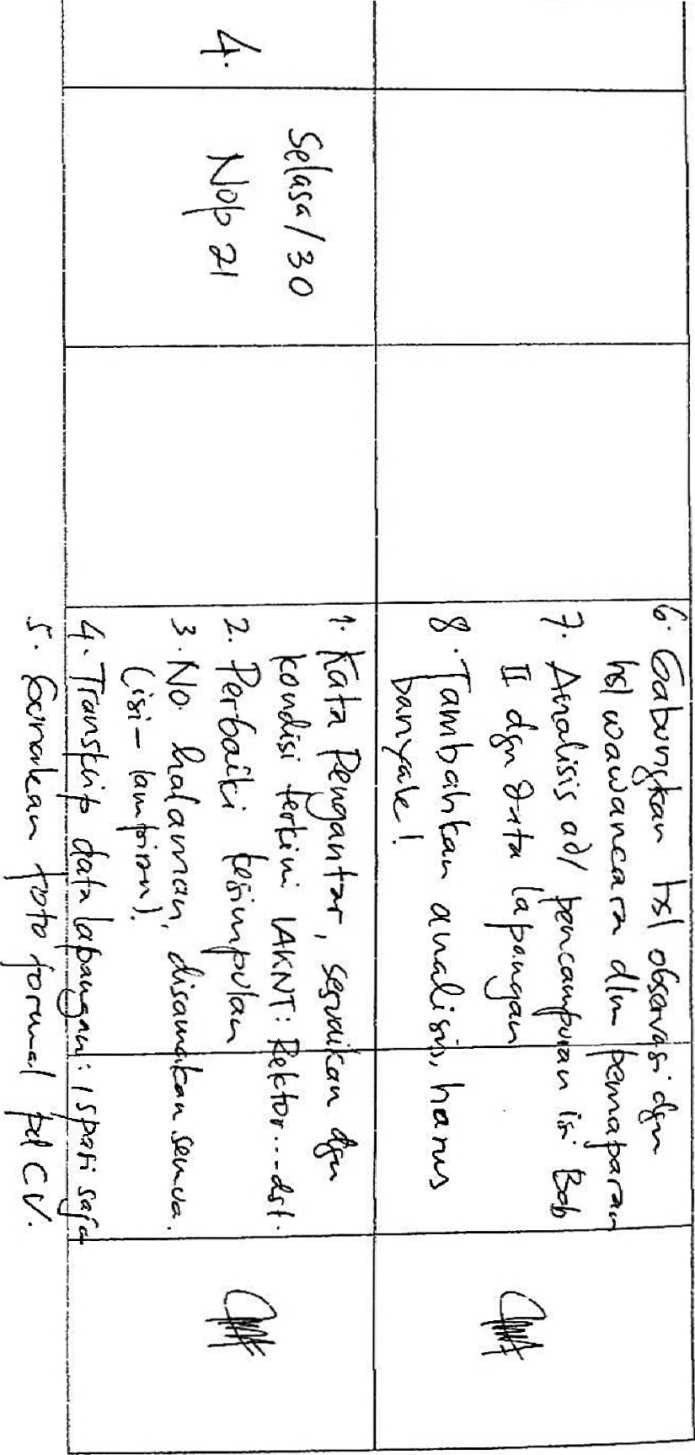 6. Gabungkan hsl observasi dgn
hsl wawancara dlm pemaparan
7. Analisis adl pencampuran isi Bab
II dgn data lapangan
8. Tambahkan analisis, harus
banyak!
4.
Selasa/30
Nop 21
1. Kata Pengantar, sesuaikan dgn
kondisi terkini IAKNT: Rektor...dst.
2. Perbaiki kesimpulan
3. No. halaman, disamakan semua.
(isi-lampiran).
4. Transkip data lapangan: 1 spasi saja
5. Gunakan foto formal pd CV.